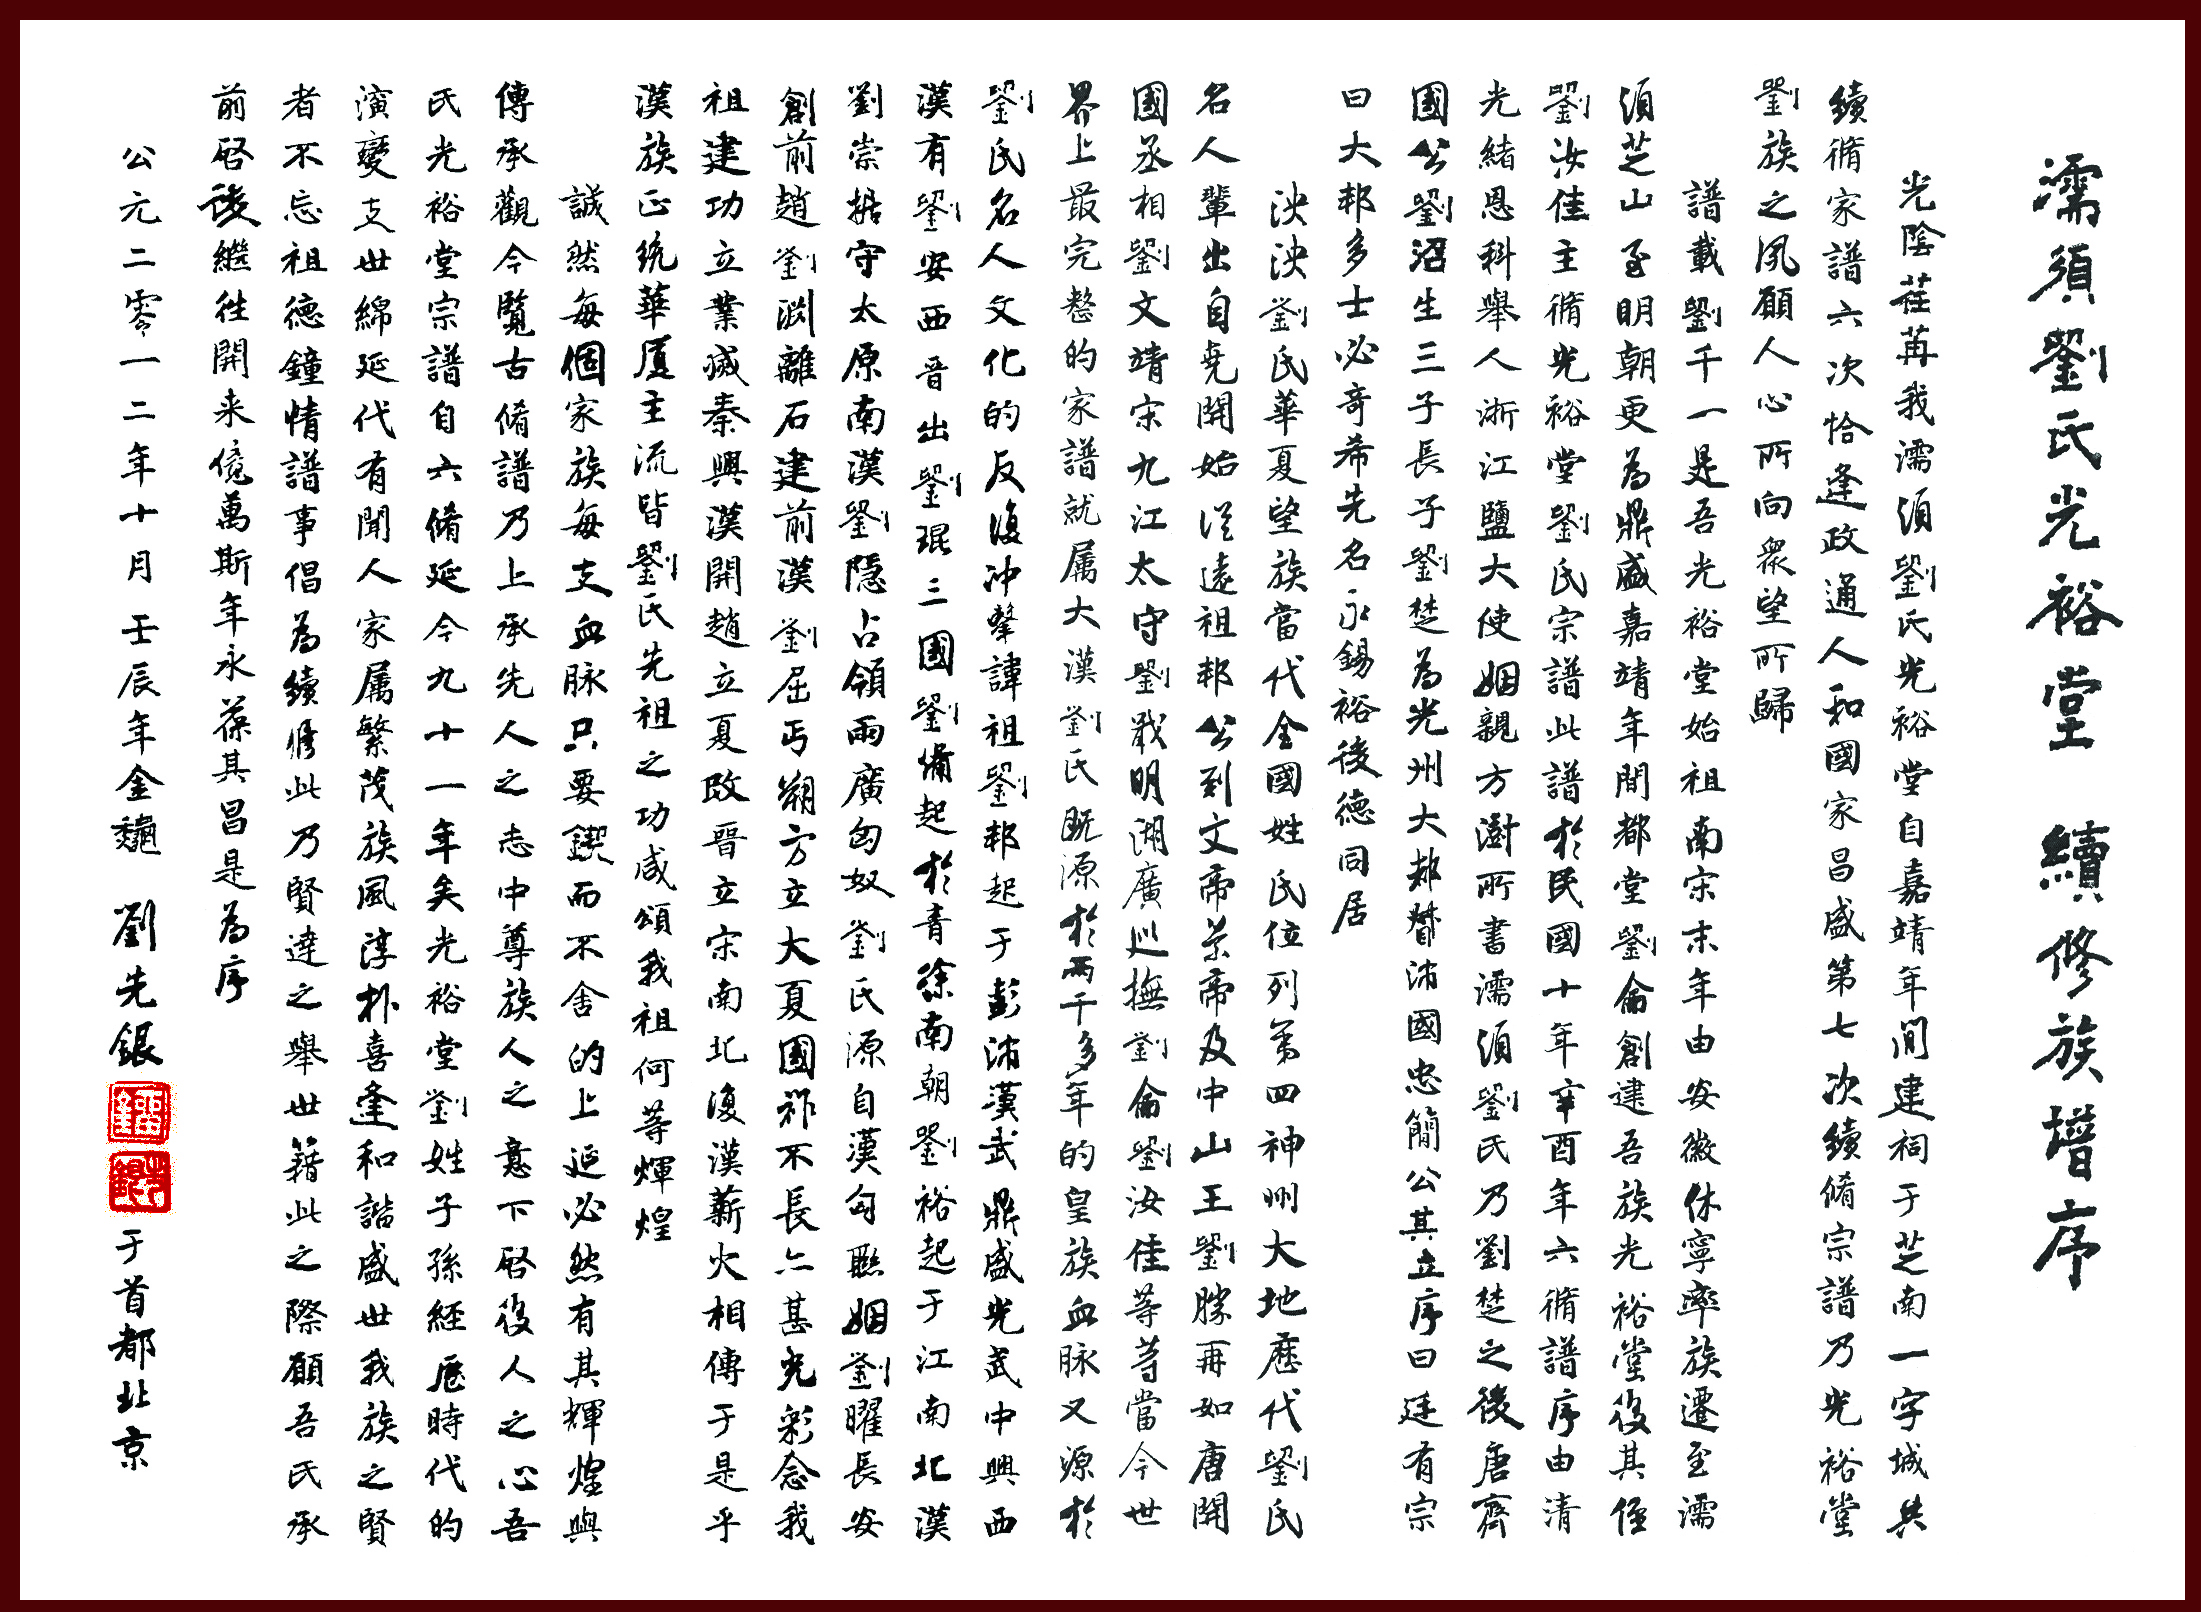 濡須劉氏光裕堂 續修族譜序
光陰荏苒我濡須劉氏光裕堂自嘉靖年間建祠于芝南一字城共
續脩家譜六次恰逢政通人和國家昌盛第七次續脩宗譜乃光裕堂
劉族之夙願人心所向衆望所歸
譜載劉千一是吾光裕堂始祖南宋末年由安徽休寧率族遷至濡
須芝山至明朝更為鼎盛嘉靖年間都堂劉侖創建吾族光裕堂後其侄
劉汝佳主脩光裕堂劉氏宗譜此譜於民國十年辛酉年六脩譜序由清
光緒恩科舉人浙江鹽大使姻親方澍所書濡須劉氏乃劉楚之後唐齊
國公劉沼生三子長子劉楚為光州大都督沛國忠簡公其立序曰廷有宗
曰大邦多士必奇希先名永錫裕後德同居
泱泱劉氏華夏望族當代全國姓氏位列第四神州大地歷代劉氏
名人輩出自堯開始從遠祖邦公到文帝景帝及中山王劉勝再如唐開
國丞相劉文靖宋九江太守劉戢明湖廣巡撫劉侖劉汝佳等等當今世
界上最完整的家譜就属大漢劉氏既源於兩千多年的皇族血脉又源於
劉氏名人文化的反復冲擊諱祖劉邦起于彭沛漢武鼎盛光武中興西
漢有劉安西晋出劉琨三國劉備起於青徐南朝劉裕起于江南北漢
劉崇据守太原南漢劉隱占領兩廣匈奴劉氏源自漢匈聯姻劉曜長安
創前趙劉渊離石建前漢劉屈丐朔方立大夏國祚不長亦甚光彩念我
祖建功立業滅秦興漢開趙立夏啟晋立宋南北復漢薪火相傳于是乎
漢族正統華厦主流皆劉氏先祖之功咸頌我祖何等煇煌
誠然每個家族每支血脉只要鍥而不舍的上延必然有其輝煌與
傳承觀今覧古脩譜乃上承先人之志中尊族人之意下啓後人之心吾
氏光裕堂宗譜自六脩延今九十一年矣光裕堂劉姓子孫經歷時代的
演變支世綿延代有聞人家属繁茂族風淳朴喜逢和諧盛世我族之賢
者不忘祖德鐘情譜事倡為續脩此乃賢達之舉世籍此之際願吾氏承
前啓後繼往開来億萬斯年永葆其昌是為序
公元二零一二年十月壬辰年金魏 劉先銀 于首都北京